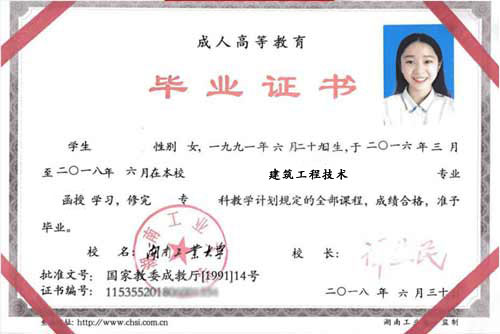 成人高等教育
毕业证书
学生 性别 女, 一九九一年 六 月二十九日生, 于 二〇一六 年 三 月
至二〇一八年 六 月在本校 建筑工程技术 专业
函授 学习, 修完 专 科教学计划规定的全部课程, 成绩合格, 准予
毕业。
校 名: 湖南工业大学 校 长:
批准文号: 国家教委成教厅[1991]14号
证书编号: 115355201
二〇一八 年 六 月三十日
http://www.chsi.com.cn 湖南工业 监制